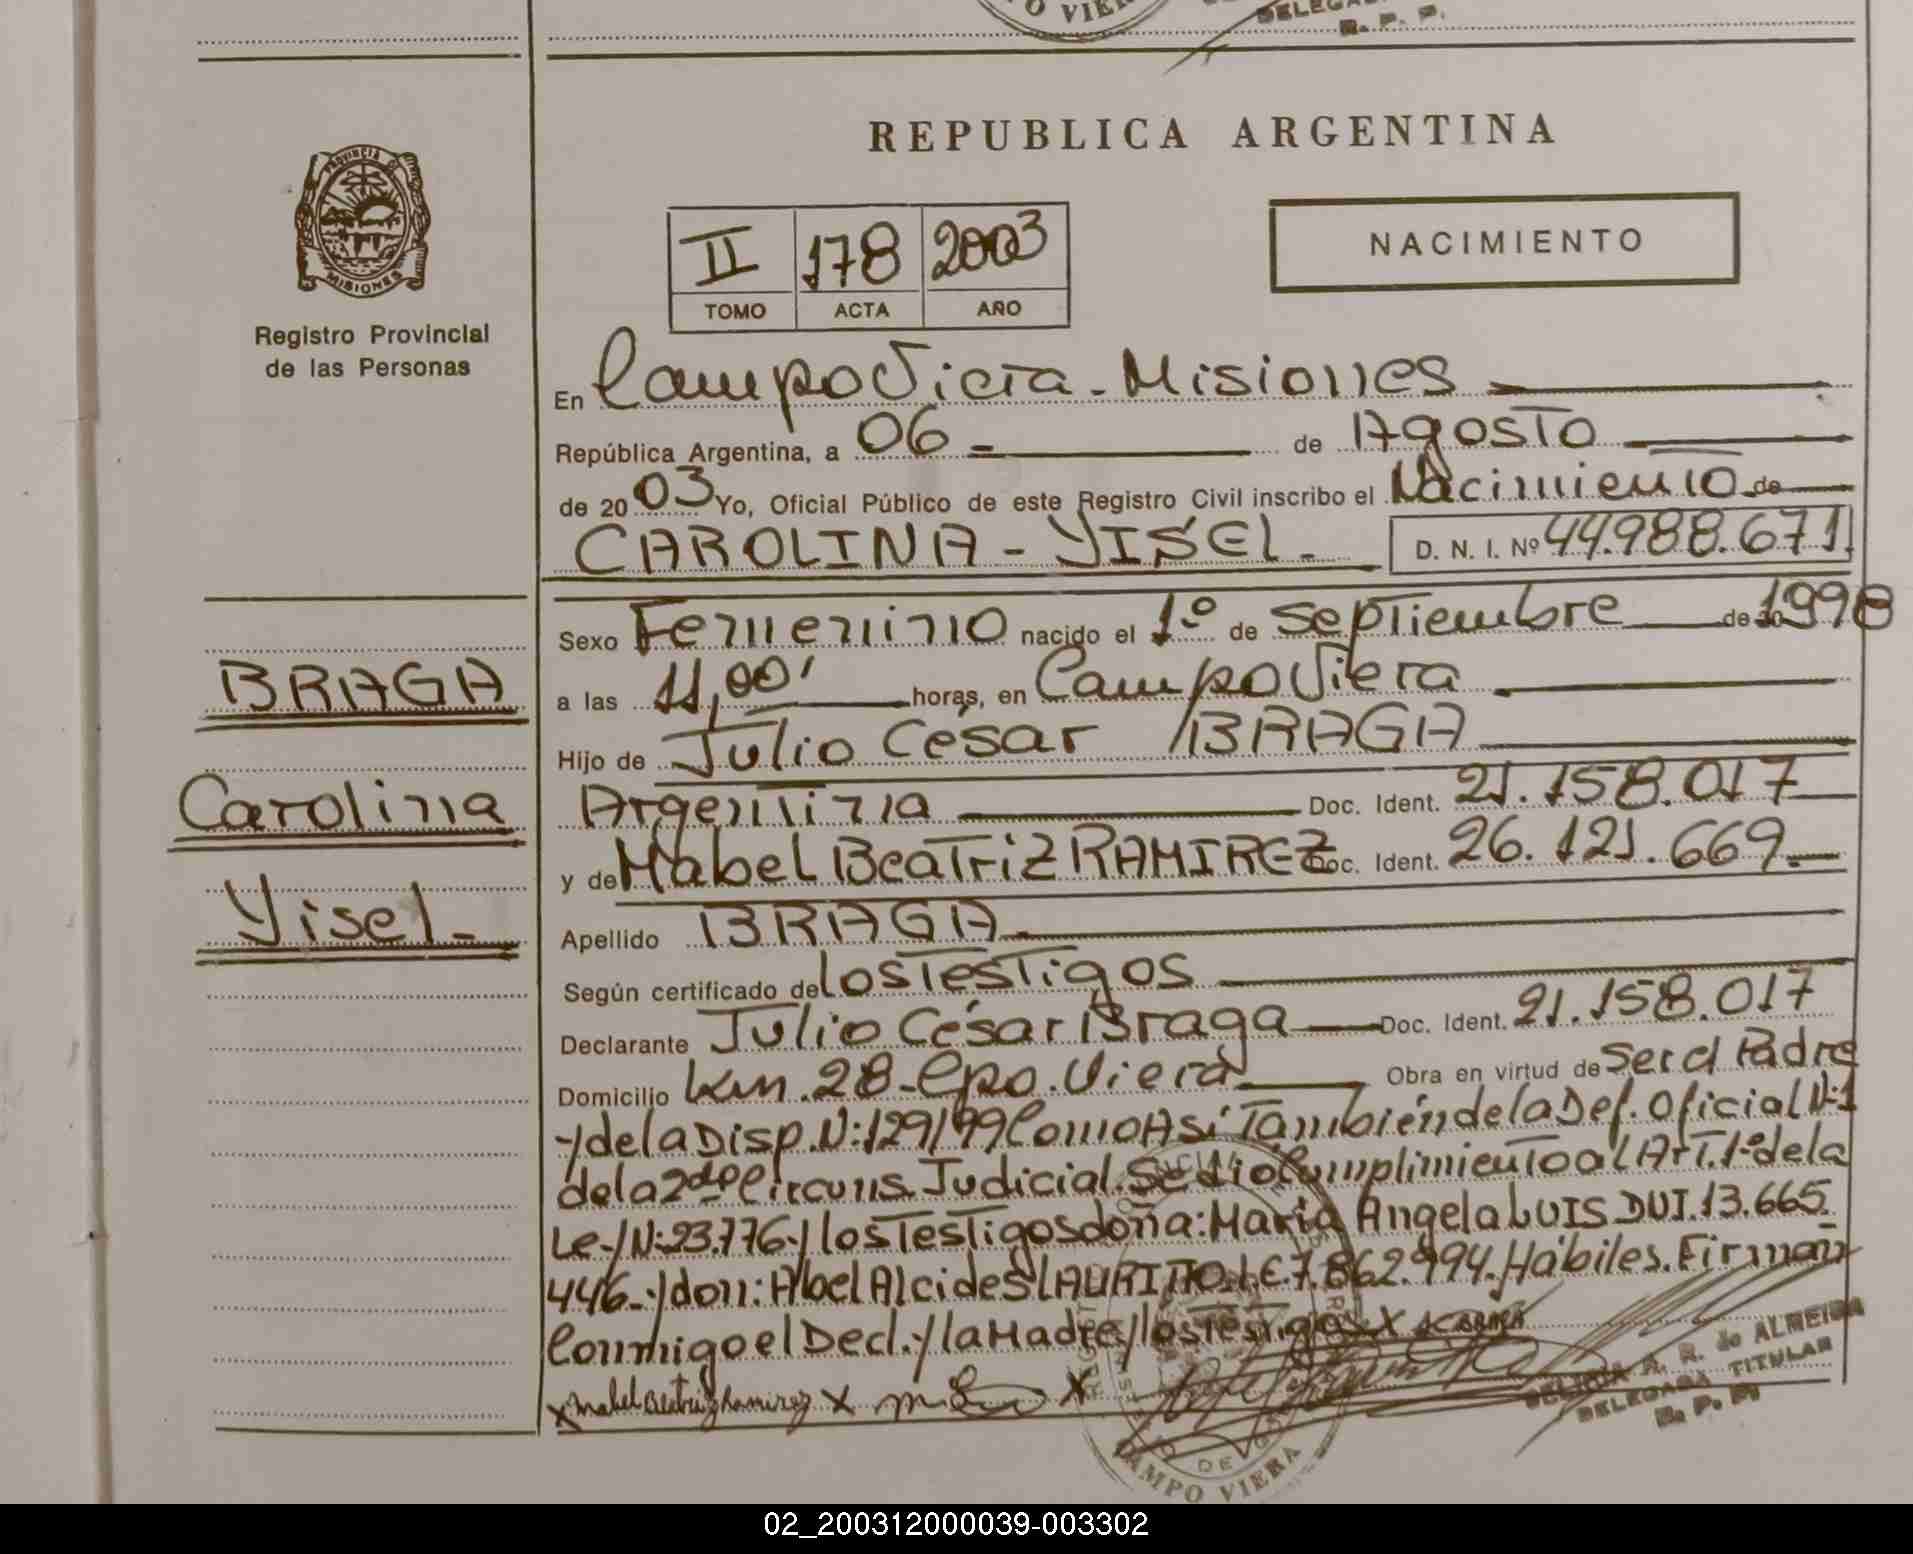 PO VIER
DELEGA
R. P. P.
REPUBLICA ARGENTINA
PROVINCIA DE
MISIONES
Registro Provincial
de las Personas
II 178 2003
TOMO ACTA AÑO
NACIMIENTO
En Campo Viera - Misiones
República Argentina, a 06 - de Agosto
de 2003 Yo, Oficial Público de este Registro Civil inscribo el Nacimiento de
CAROLINA - YISEL - D. N. I. Nº 44.988.671
Sexo Femenino nacido el 1º de Septiembre de 1998
BRAGA
a las 11,00' horas, en Campo Viera
Hijo de Julio César BRAGA
Carolina
Argentina Doc. Ident. 21.158.017
y de Mabel Beatriz RAMIREZ Doc. Ident. 26.121.669
Yisel -
Apellido BRAGA
Según certificado de los Testigos
Declarante Julio César Braga Doc. Ident. 21.158.017
Domicilio km. 28 - Cpo. Viera Obra en virtud de Ser el Padre
y de la Disp. N: 129/99 Como Así También de la Def. Oficial N: 1
de la 2da Circuns. Judicial. Se dio Cumplimiento al Art. 1º de la
Ley N: 23.776 y los Testigos doña: María Angela LUIS DUI. 13.665.
446 - y don: Abel Alcides LAURITTO L.E. 7.862.994. Hábiles. Firman
Conmigo el Decl. y la Madre y los Testigos X JC BRAGA
X Mabel Beatriz Ramirez X X
R. R. de ALMEIDA
DELEGADA TITULAR
R. P. P.
DE
CAMPO VIERA
02_200312000039-003302